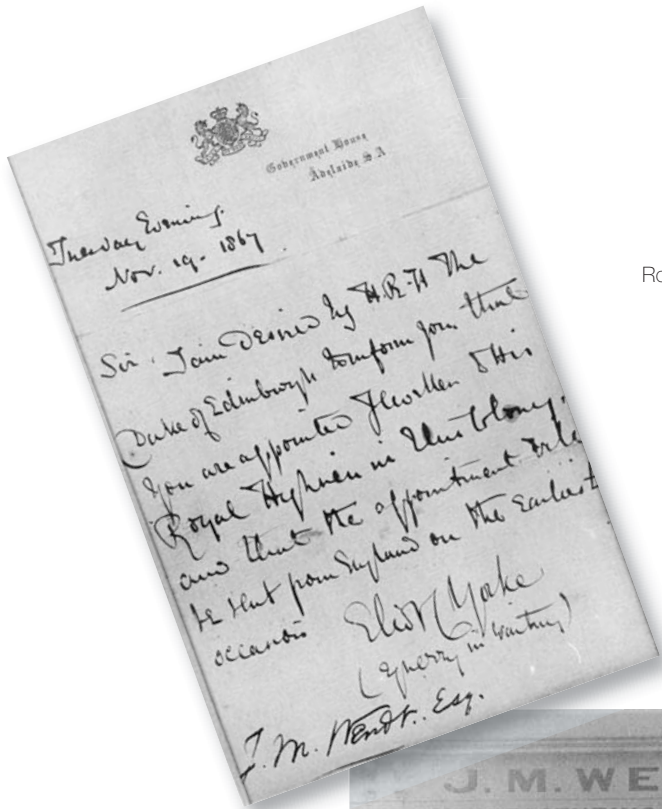 Government House
Adelaide S.A
Tuesday Evening.
Nov. 19. 1867.
Sir. I am desired by H.R.H The
Duke of Edinburgh to inform you that
You are appointed Jeweller to His
Royal Highness in this Colony.
and that the appointment will
be sent from England on the earliest
occasion
Eliot Yorke
(Equerry in waiting)
J. M. Wendt. Esq.
Ro
J. M. WE